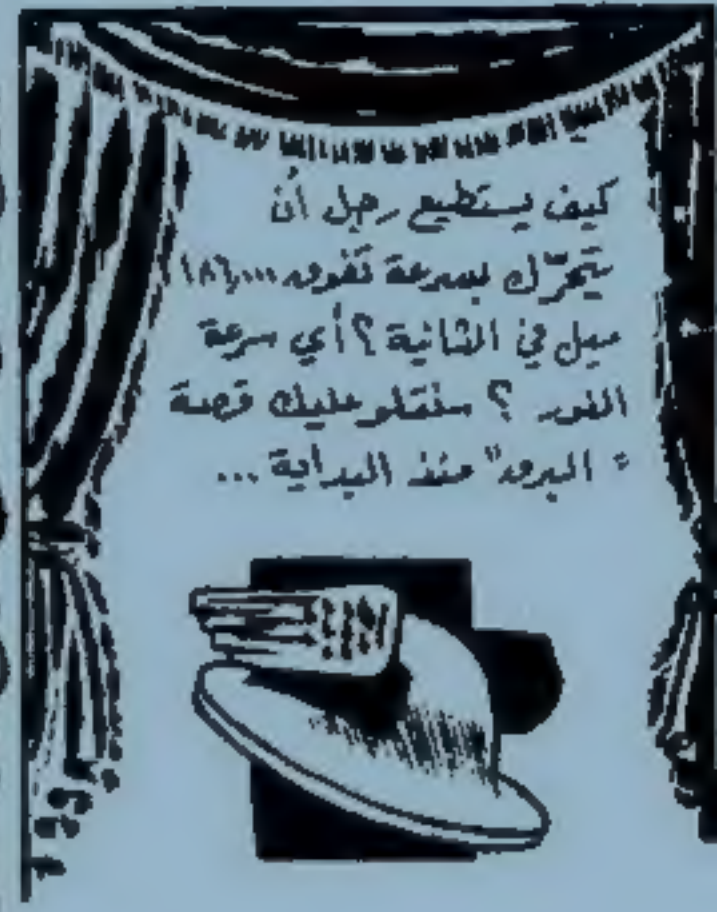 كيف يستطيع رجل أن
يتحرّك بسرعة تفوق ١٨٦,٠٠٠
ميل في الثانية ؟ أي سرعة
النور ؟ سنتلو عليك قصة
"البرق" منذ البداية ...